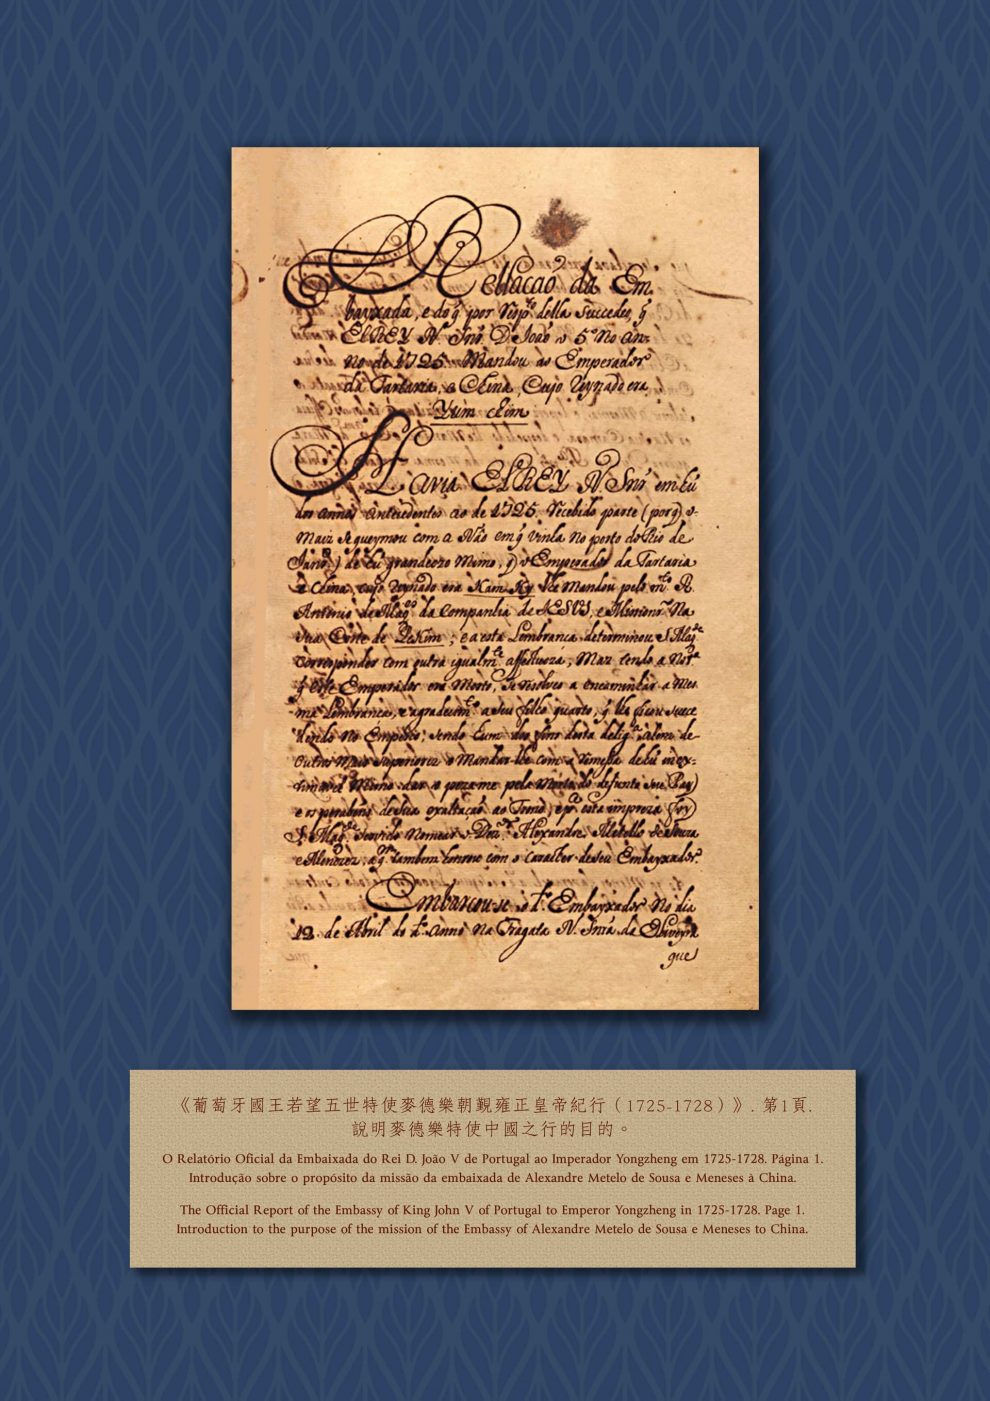 Rellação da Em
baixada, e do q̃ por Resp.to della succedeo, q̃
El REY N. Snr. D. João o 5.º No An-
no de 1725. Mandou ao Emperador
da Tartaria, e China, Cujo Reynado era
Yum chim
Havia El REY N. Snr. em hũ
dos annos antecedentes ao de 1725. recebido parte (porq̃ o
Maiz se queymou com a Náo em q̃ vinha No porto do Rio de
Janr.o) de hũ grandeozo Mimo, q̃ o Emperador da Tartaria
e China, cujo Reynado era Kam Hy lhe Mandou pelo P.
Antonio de Mag.es da Companhia de JESUS, e Mission.ro Na
sua Corte de PeKim; e a esta Lembranca determinou S. Mag.de
corresponder com outra igualm.te affectuoza; Maz tendo a Not.a
q̃ este Emperador era Morto, se resolveo a encaminhar a Mes-
ma Lembranca, e agradecim.to a seu filho quarto, q̃ lhe ficou succe
dendo No Emperio; sendo hum dos fins desta delig.ca alem de
outros Mais superiores o Mandar-lhe com a remessa de hũ inex-
timavel Mimo dar o pezame pela Morte do defunto seu Pay
e os parabens de sua exaltação ao Trono; e p.a esta impreza foy
S. Mag.de servido Nomear o Dez.or Alexandre Metello de Souza
e Menezes, a q.m tambem honrou com o Caracter de seu Embayxador.
Embarcou-se o d.º Embayxador No dia
12 de Abril do d.º anno Na Fragata N. Snra. da Oliveyra
que
《葡萄牙國王若望五世特使麥德樂朝覲雍正皇帝紀行（1725-1728）》. 第1頁.
說明麥德樂特使中國之行的目的。
O Relatório Oficial da Embaixada do Rei D. João V de Portugal ao Imperador Yongzheng em 1725-1728. Página 1.
Introdução sobre o propósito da missão da embaixada de Alexandre Metelo de Sousa e Meneses à China.
The Official Report of the Embassy of King John V of Portugal to Emperor Yongzheng in 1725-1728. Page 1.
Introduction to the purpose of the mission of the Embassy of Alexandre Metelo de Sousa e Meneses to China.